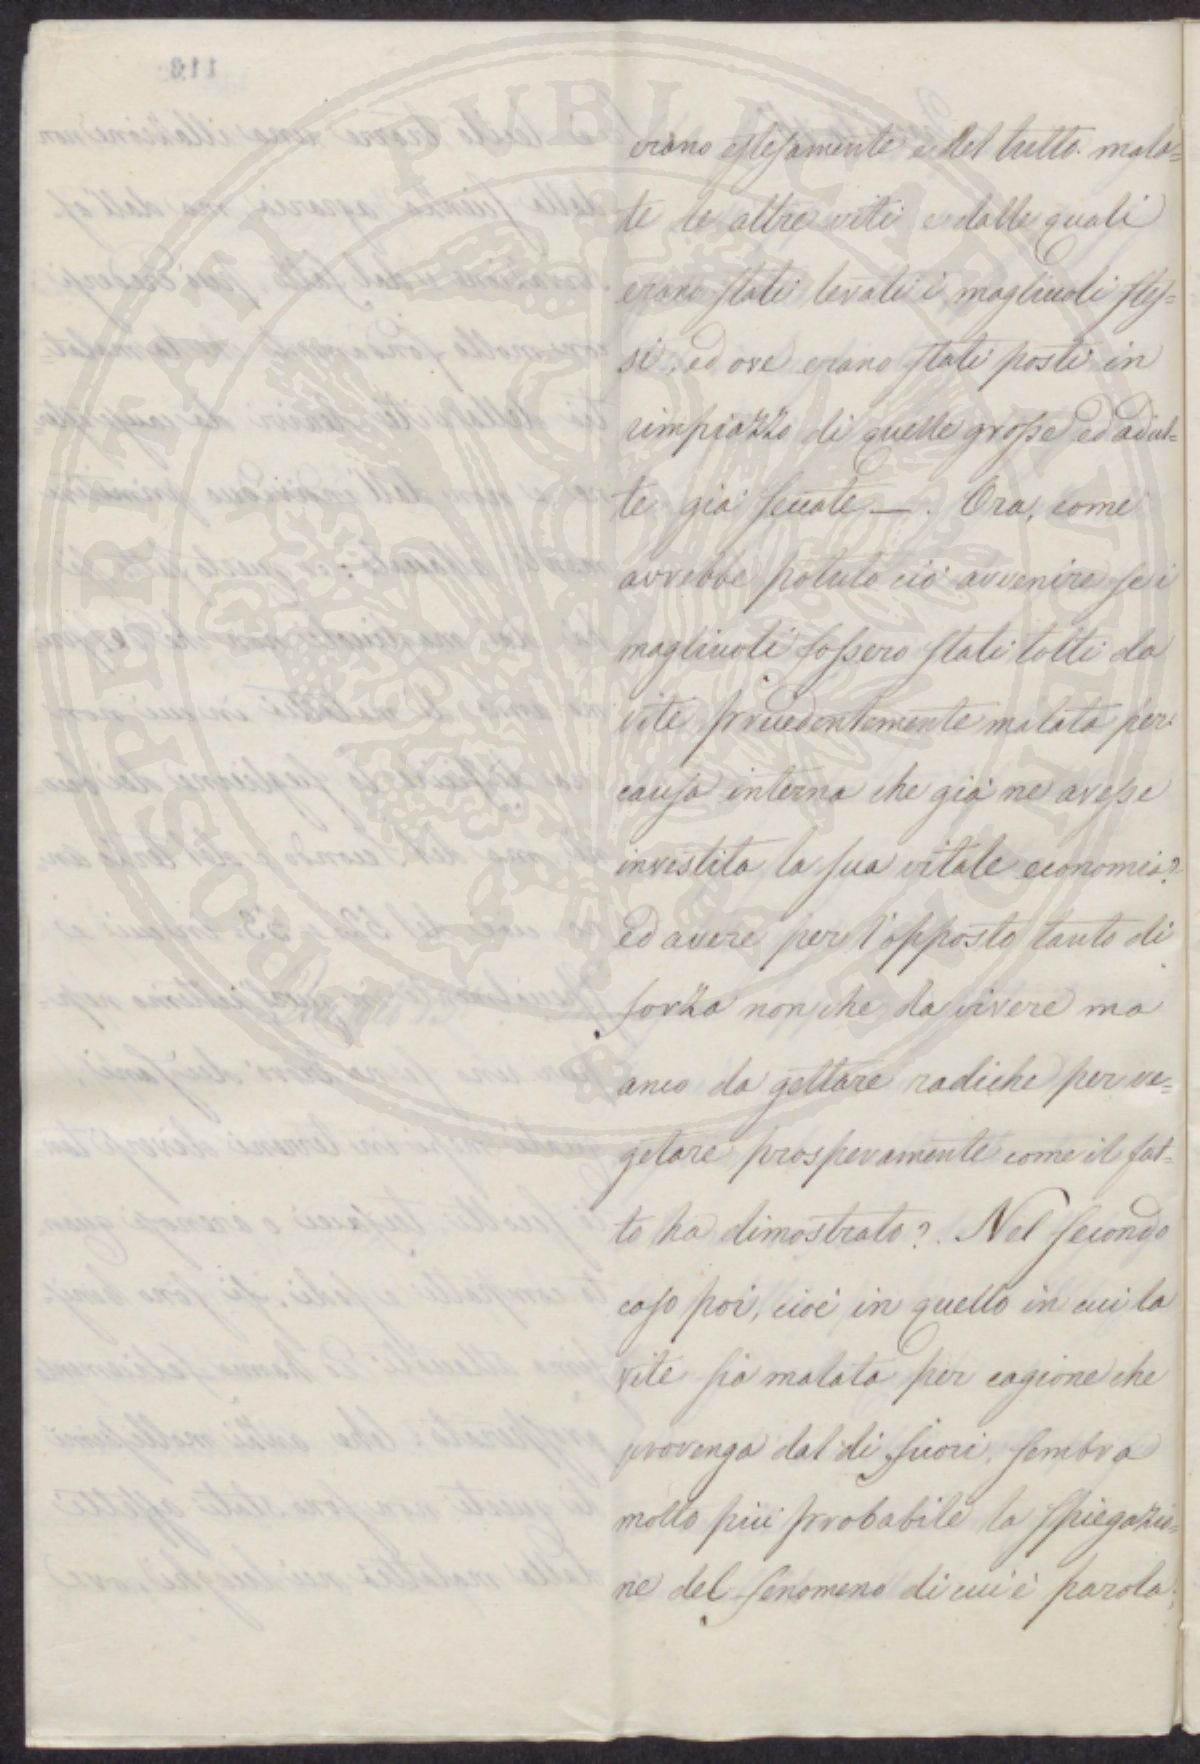 erano estesamente e del tutto mala=
te le altre viti e dalle quali
erano stati levati i magliuoli stes=
si, ed ove erano stati posti in
rimpiazzo di quelle grosse ed adul=
te già seccate —. Ora, come
avrebbe potuto ciò avvenire se i
magliuoli fossero stati tolti da
vite precedentemente malata per
causa interna che già ne avesse
investita la sua vitale economia?
ed avere per l'opposto tanto di
forza non che da vivere ma
anco da gettare radiche per ve=
getare prosperamente come il fat=
to ha dimostrato? Nel secondo
caso poi, cioè in quello in cui la
vite sia malata per cagione che
provenga dal di fuori, sembra
molto più probabile la spiegazio=
ne del fenomeno di cui è parola;